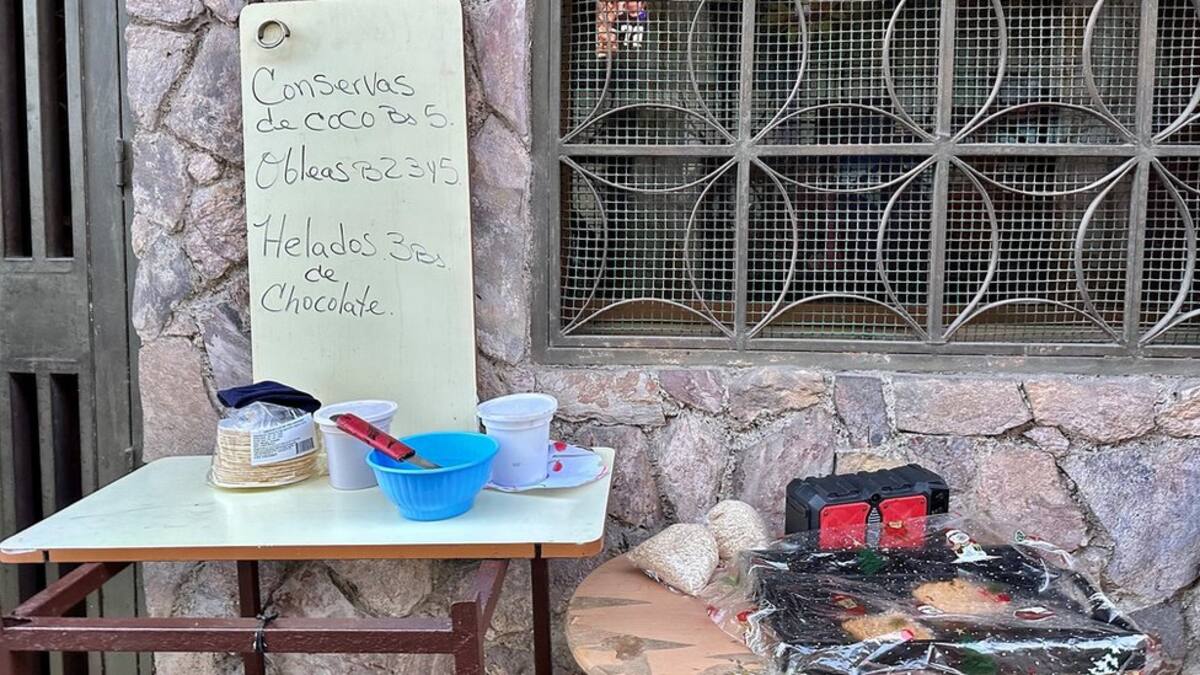 Conservas
de coco Bs 5.
Obleas B2345.
Helados. 3Bs.
de
Chocolate.